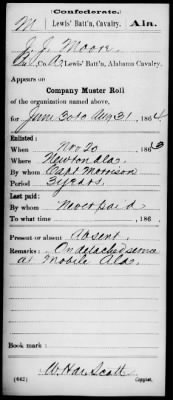 (Confederate.)
M Lewis' Batt'n, Cavalry. Ala.
J. J. Moore
Co. A Lewis' Batt'n, Alabama Cavalry.
Appears on
Company Muster Roll
of the organization named above,
for June 30 to Aug 31, 1864
Enlisted:
When Nov 20, 1863
Where Newton Ala.
By whom Capt Morrison
Period 3 years.
Last paid:
By whom Never paid
To what time , 186 .
Present or absent Absent.
Remarks: On detached service
at Mobile Ala.
Book mark:
W. Hae Scott
(642) Copyist.